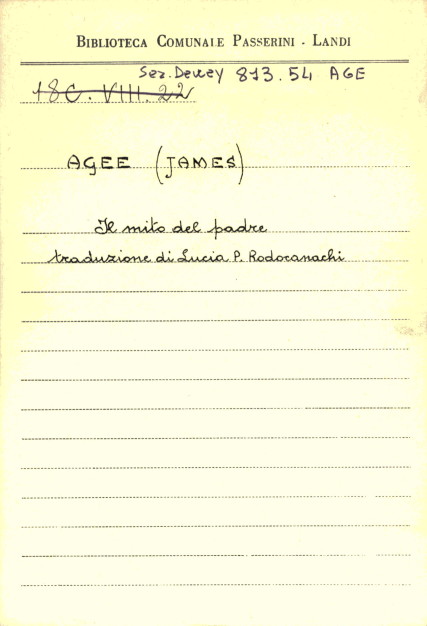 BIBLIOTECA COMUNALE PASSERINI - LANDI
Sez. Dewey 813.54 AGE
18C. VIII. 22
AGEE (JAMES)
Il mito del padre
traduzione di Lucia P. Rodocanachi